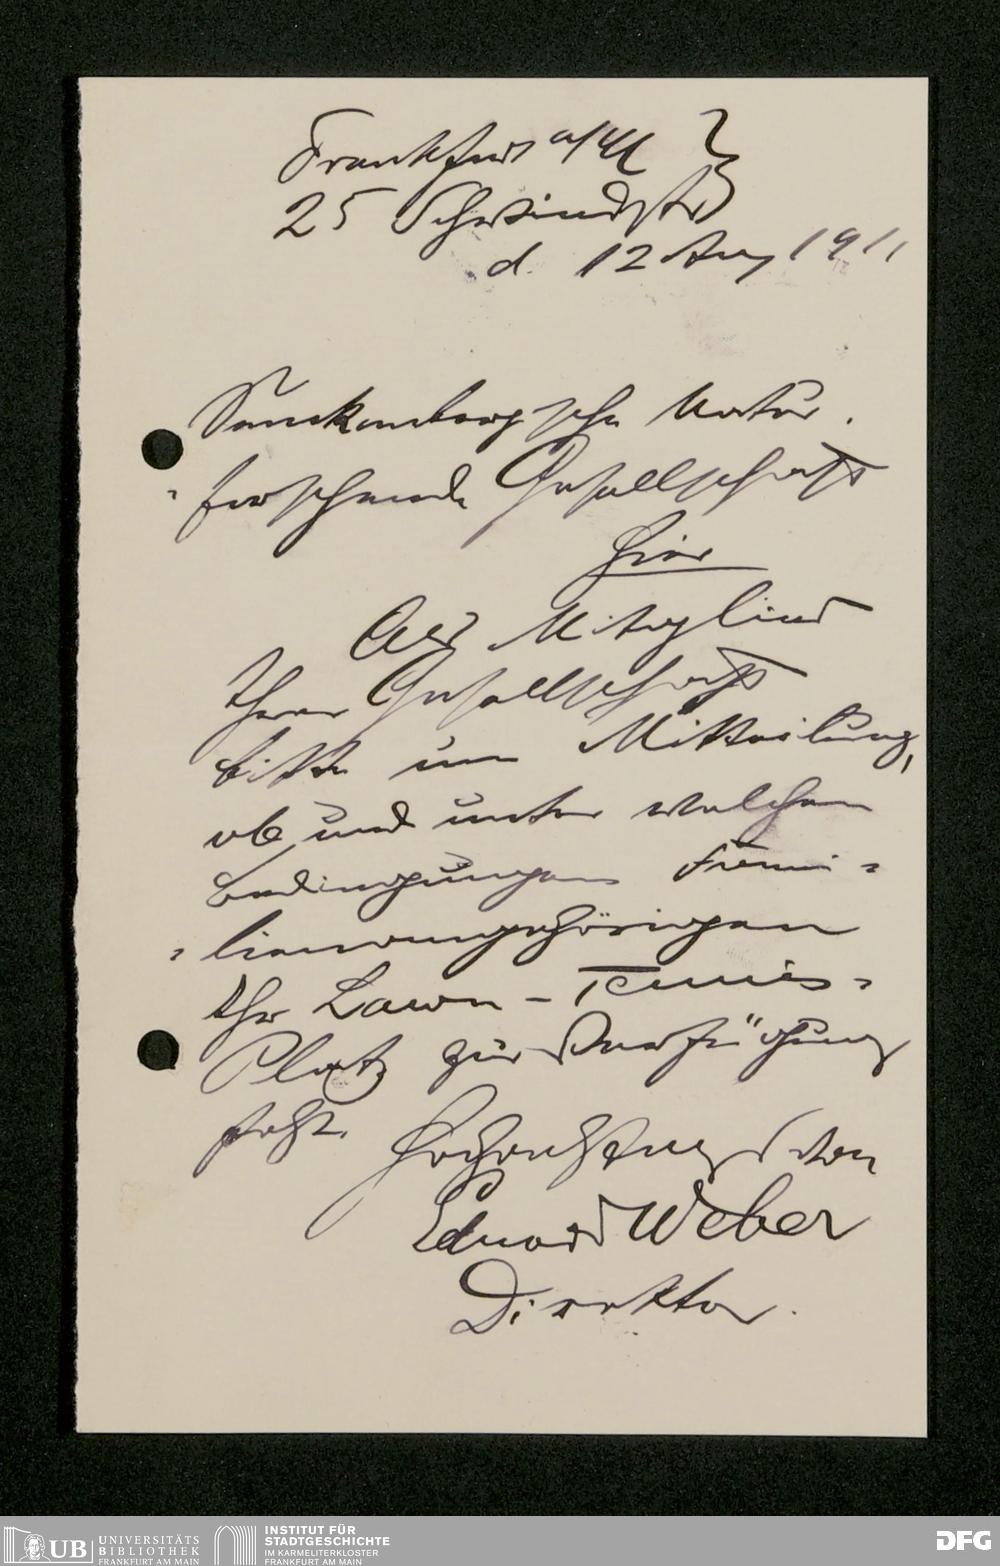 Frankfurt a/M
25 Schwindstr
d. 12 Aug 1911
Senckenbergische Natur-
-forschende Gesellschaft
Hier
Als Mitglied
Ihrer Gesellschaft
bitte um Mitteilung,
ob und unter welchen
Bedingungen Fami-
-lienangehörigen
Ihr Lawn-Tennis-
Platz zur Verfügung
steht.
Hochachtungsvoll
Eduard Weber
Direktor.
UB UNIVERSITÄTS
BIBLIOTHEK
FRANKFURT AM MAIN
INSTITUT FÜR
STADTGESCHICHTE
IM KARMELITERKLOSTER
FRANKFURT AM MAIN
DFG